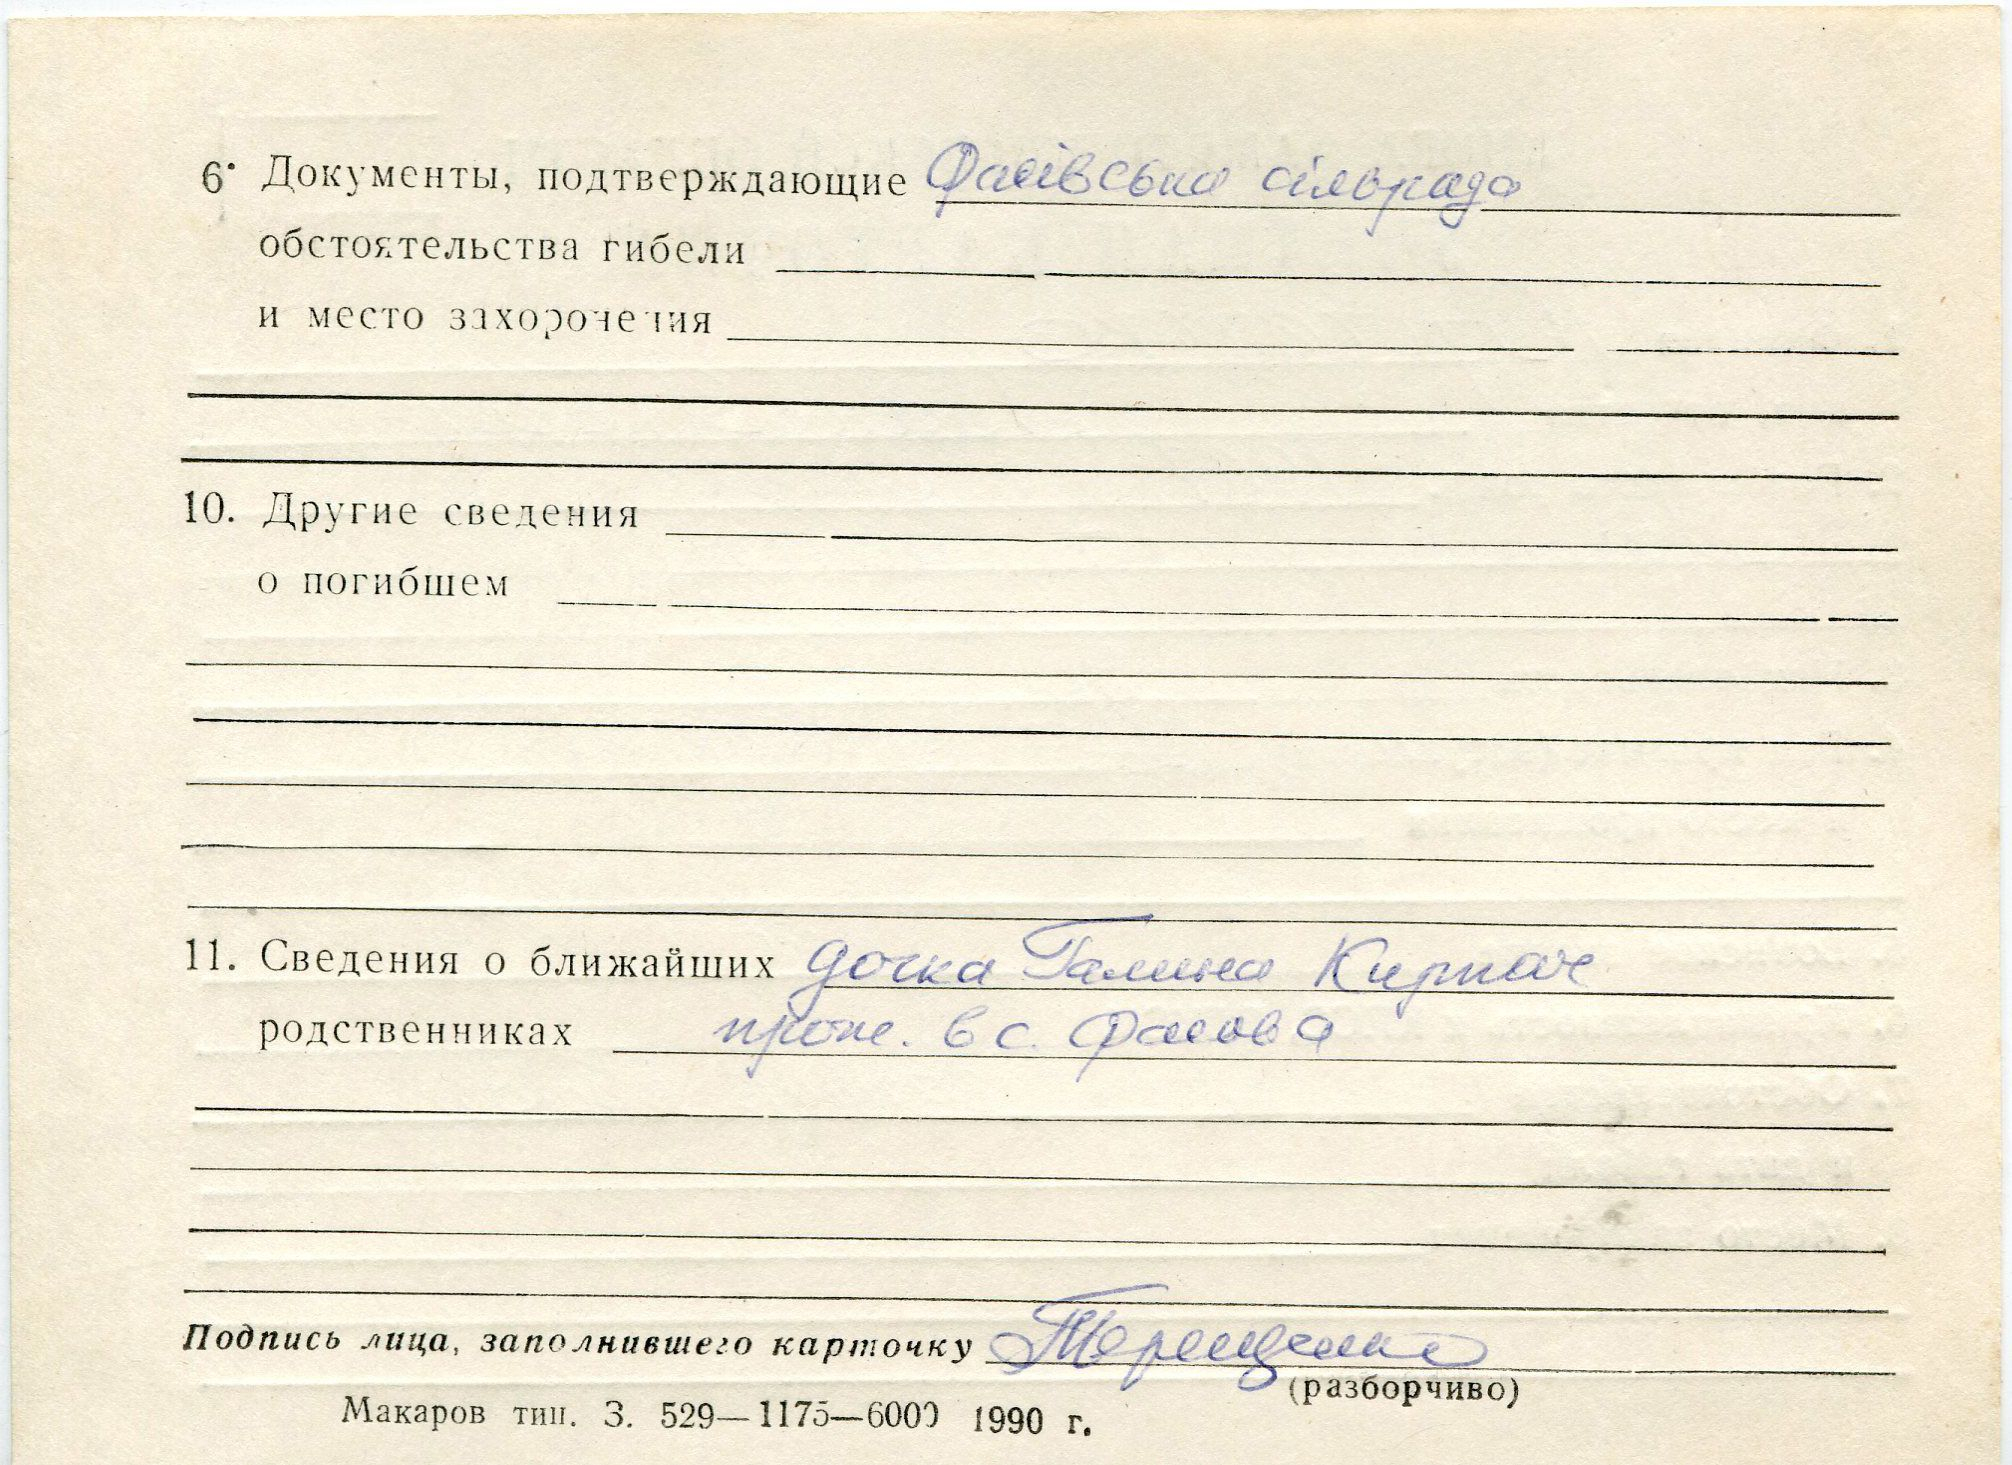 6. Документы, подтверждающие Фасівська сільрада
обстоятельства гибели
и место захоронения
10. Другие сведения
о погибшем
11. Сведения о ближайших дочка Галина Кирпач
родственниках прож. в с. Фасова
Подпись лица, заполнившего карточку Терещенко
(разборчиво)
Макаров тип. З. 529—1175—6000 1990 г.